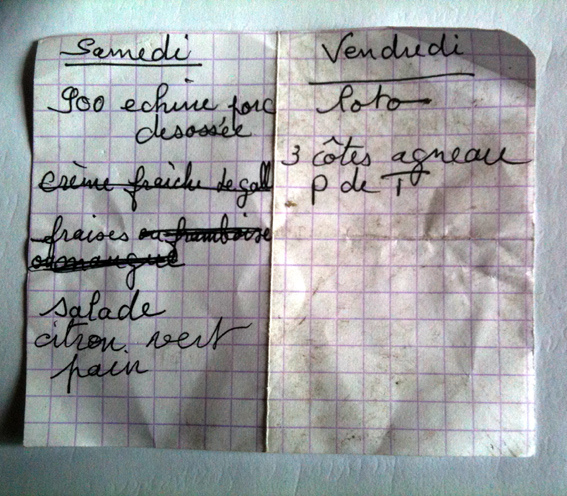 Samedi
900 echine porc
desossée
crème fraîche legall
fraises ou framboise
ou mangue
salade
citron vert
pain
Vendredi
loto
3 côtes agneau
P de T